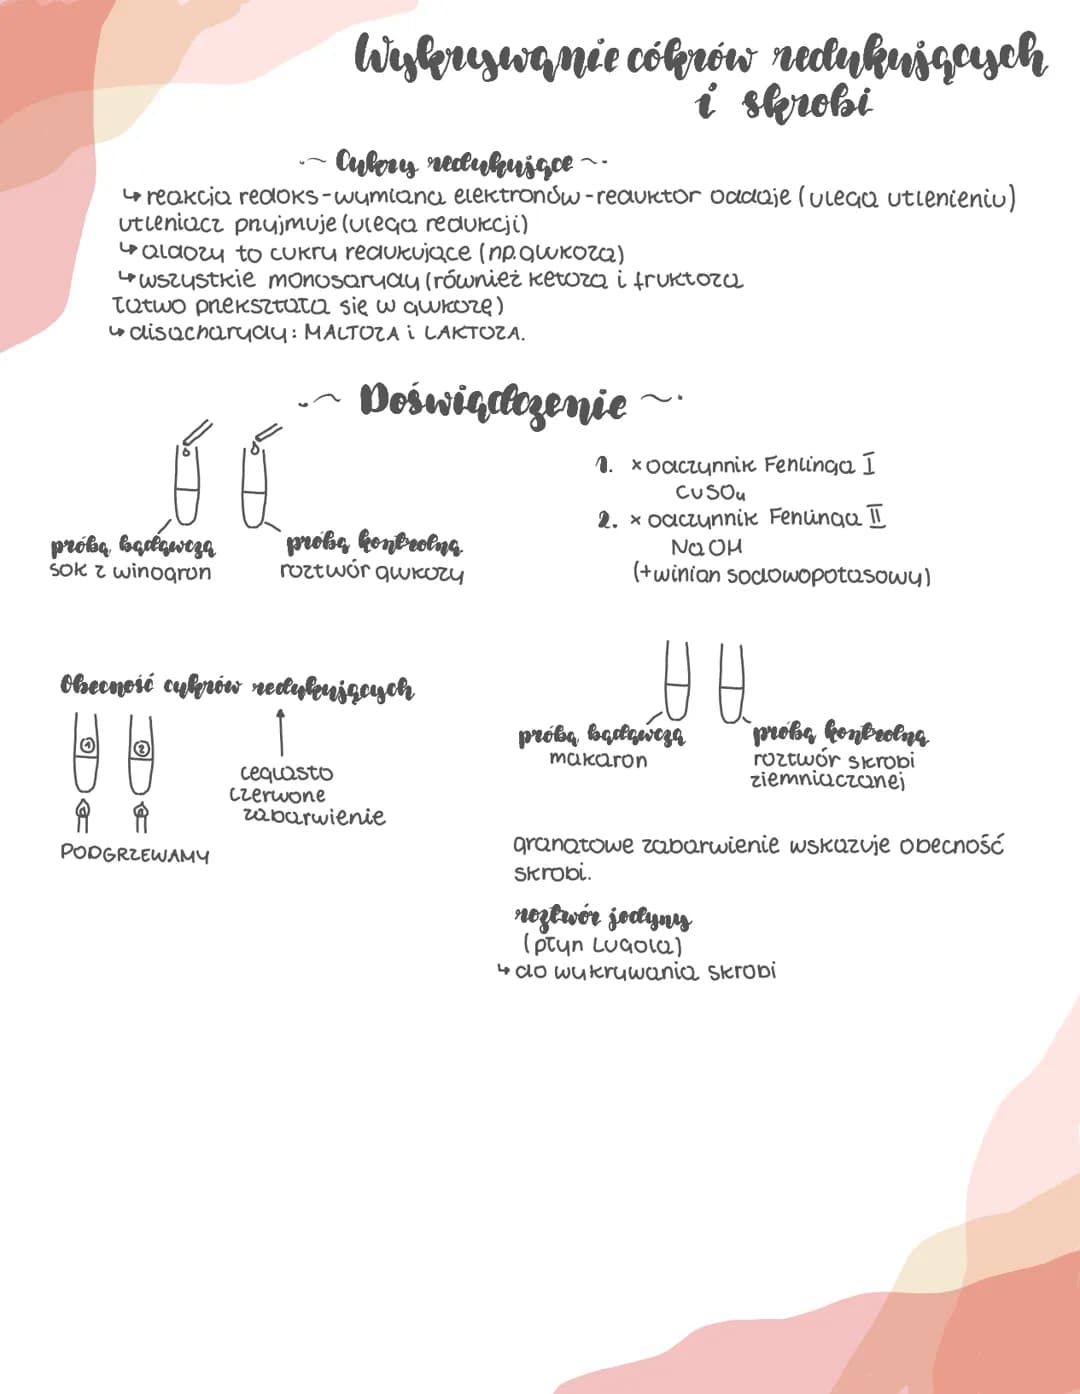 Wykrywanie cókrów redukujących
i skrobi
Cukry redukujące
↳ reakcja redoks - wymiana elektronów - reduktor oddaje (ulega utlenieniu)
utleniacz przyjmuje (ulega redukcji)
↳ aldozy to cukry redukujące (np. glukoza)
↳ wszystkie monosarydy (również ketoza i fruktoza
łatwo przekształca się w glukozę)
↳ disacharydy: MALTOZA i LAKTOZA.
Doświadczenie
próba badawcza
sok z winogron
próba kontrolna
roztwór glukozy
1. x odczynnik Fehlinga I
CuSO4
2. x odczynnik Fehlinga II
NaOH
(+winian sodowopotasowy)
Obecność cukrów redukujących
1 2
ceglasto
czerwone
zabarwienie
PODGRZEWAMY
próba badawcza
makaron
próba kontrolna
roztwór skrobi
ziemniaczanej
granatowe zabarwienie wskazuje obecność
skrobi.
roztwór jodyny
(płyn Lugola)
↳ do wykrywania skrobi